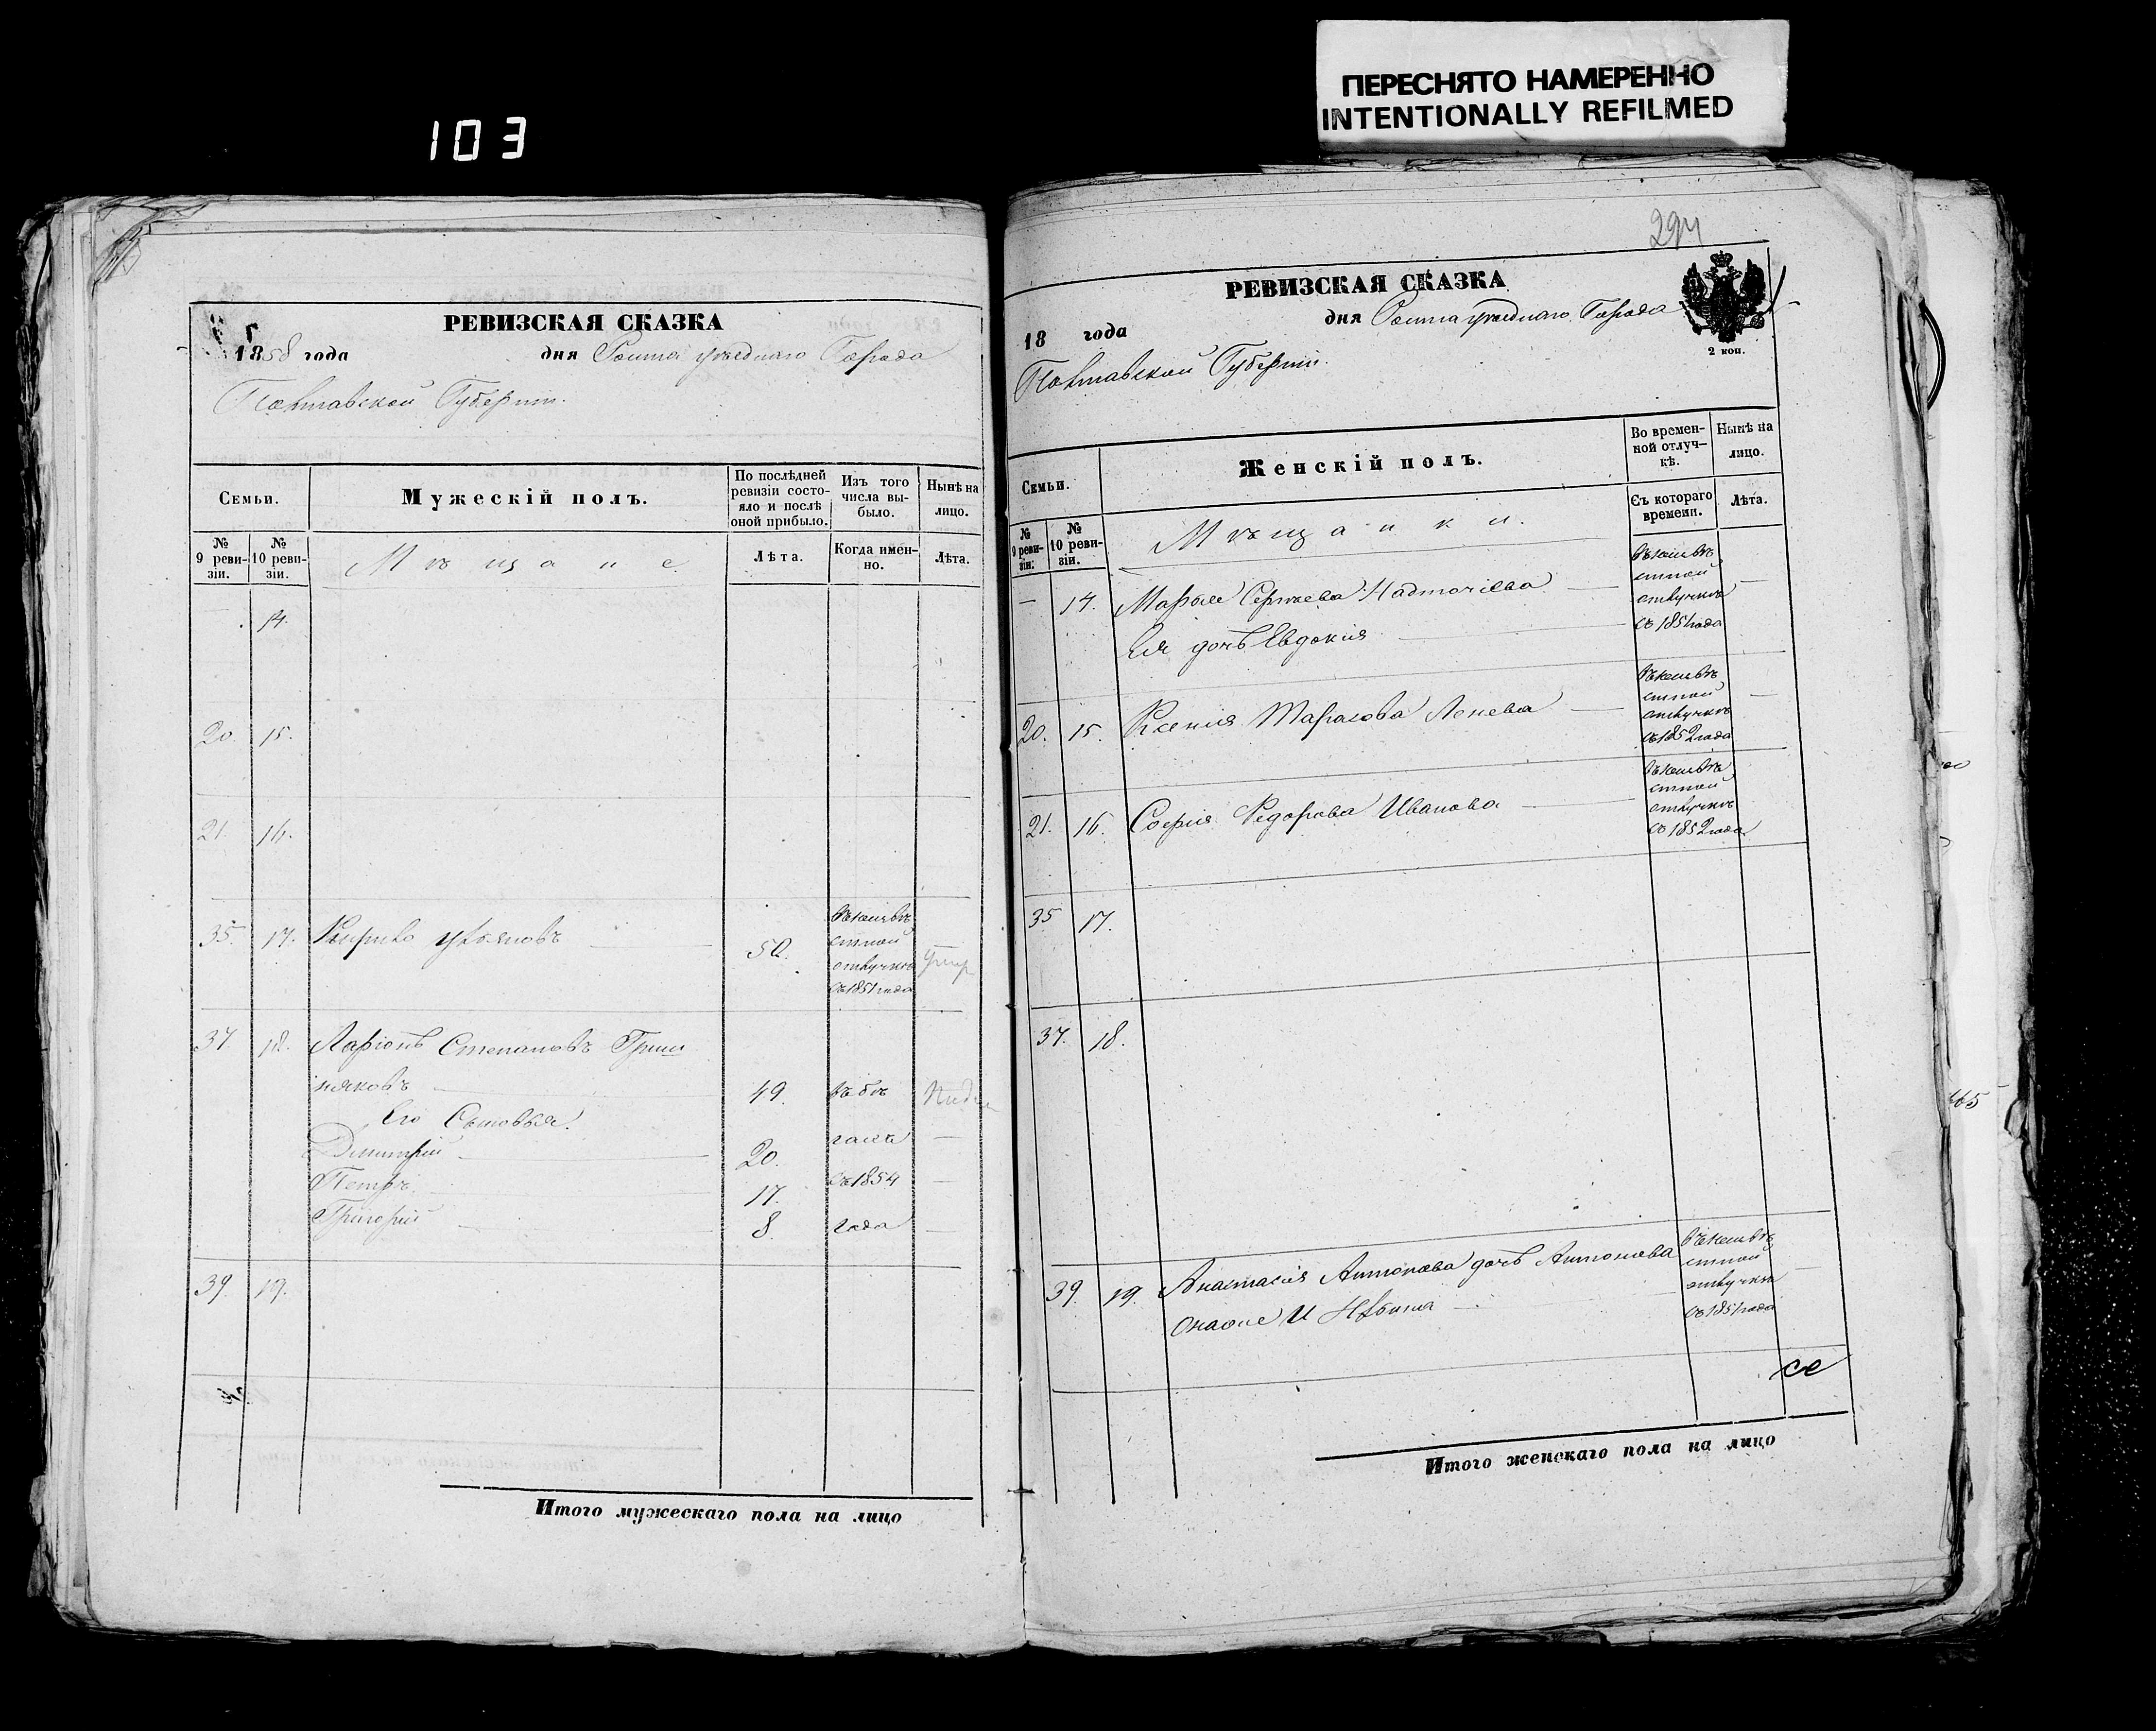 103
ПЕРЕСНЯТО НАМЕРЕННО
INTENTIONALLY REFILMED
РЕВИЗСКАЯ СКАЗКА
1858 года дня уѣзднаго Города
Полтавской Губерніи.
Семьи.
Мужескій полъ.
По послѣдней ревизіи состояло и послѣ оной прибыло.
Изъ того числа выбыло.
Нынѣ на лицо.
№ 9 ревизіи.
№ 10 ревизіи.
Мѣщане
Лѣта.
Когда именно.
Лѣта.
14.
20. 15.
21. 16.
35. 17. 50. отлучкѣ съ 1851 года
37. 18. Ларіонъ Степановъ
няковъ 49. въ бѣ
Его Сыновья. гахъ
Дмитрій 20.
Петръ 17. съ 1854
Григорій 8. года
39. 19.
Итого мужескаго пола на лицо
294
РЕВИЗСКАЯ СКАЗКА
18 года дня уѣзднаго Города
Полтавской Губерніи.
2 коп.
Семьи.
Женскій полъ.
Во временной отлучкѣ.
Нынѣ на лицо.
№ 9 ревизіи.
№ 10 ревизіи.
Мѣщанки.
Съ котораго времени.
Лѣта.
14. Марья Сергѣева Надточіева отлучкѣ
Ея дочь Евдокія съ 1851 года
20. 15. Ксенія Тарасова отлучкѣ съ 1852 года
21. 16. Софія Федорова Иванова отлучкѣ съ 1852 года
35 17.
37. 18.
39. 19. Анастасія Антонова дочь Антонова
отлучкѣ съ 1851 года
Итого женскаго пола на лицо